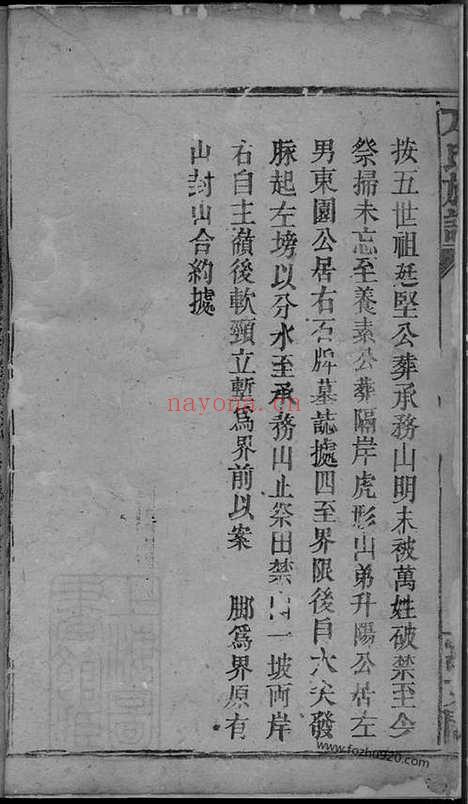 按五世祖廷堅公葬承務山明末被萬姓破禁至今
祭掃未忘至養素公葬隔岸虎形山弟升陽公居左
男東園公居右石牌墓誌據四至界限後自大尖發
脉起左塝以分水至承務山止祭田禁山一坡両岸
右自主嶺後軟頸立塹為界前以案 脚為界原有
山封山合約據
nayona.cn
www.fozhu920.com